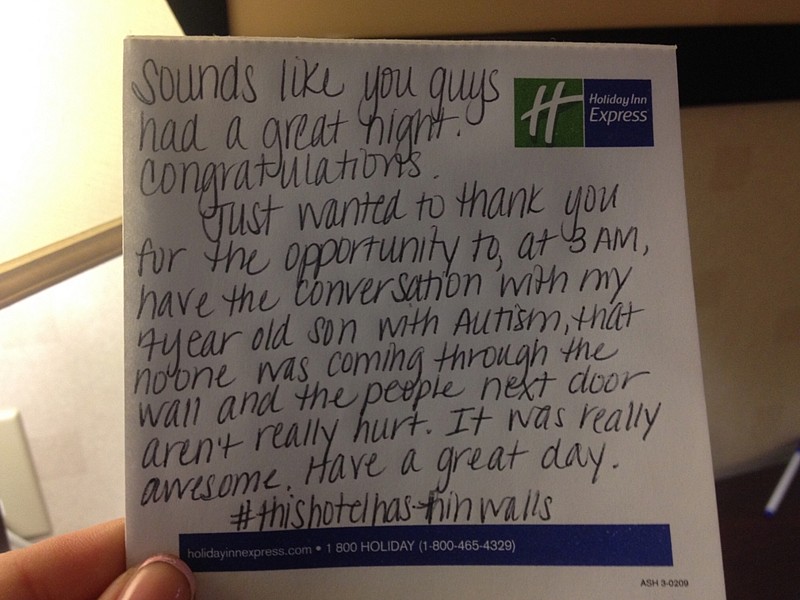 Sounds like you guys
had a great night.
Congratulations.
Holiday Inn
Express
Just wanted to thank you
for the opportunity to, at 3 AM,
have the conversation with my
7 year old son with Autism, that
no one was coming through the
wall and the people next door
aren't really hurt. It was really
awesome. Have a great day.
#thishotelhas-thinwalls
holidayinnexpress.com • 1 800 HOLIDAY (1-800-465-4329)
ASH 3-0209